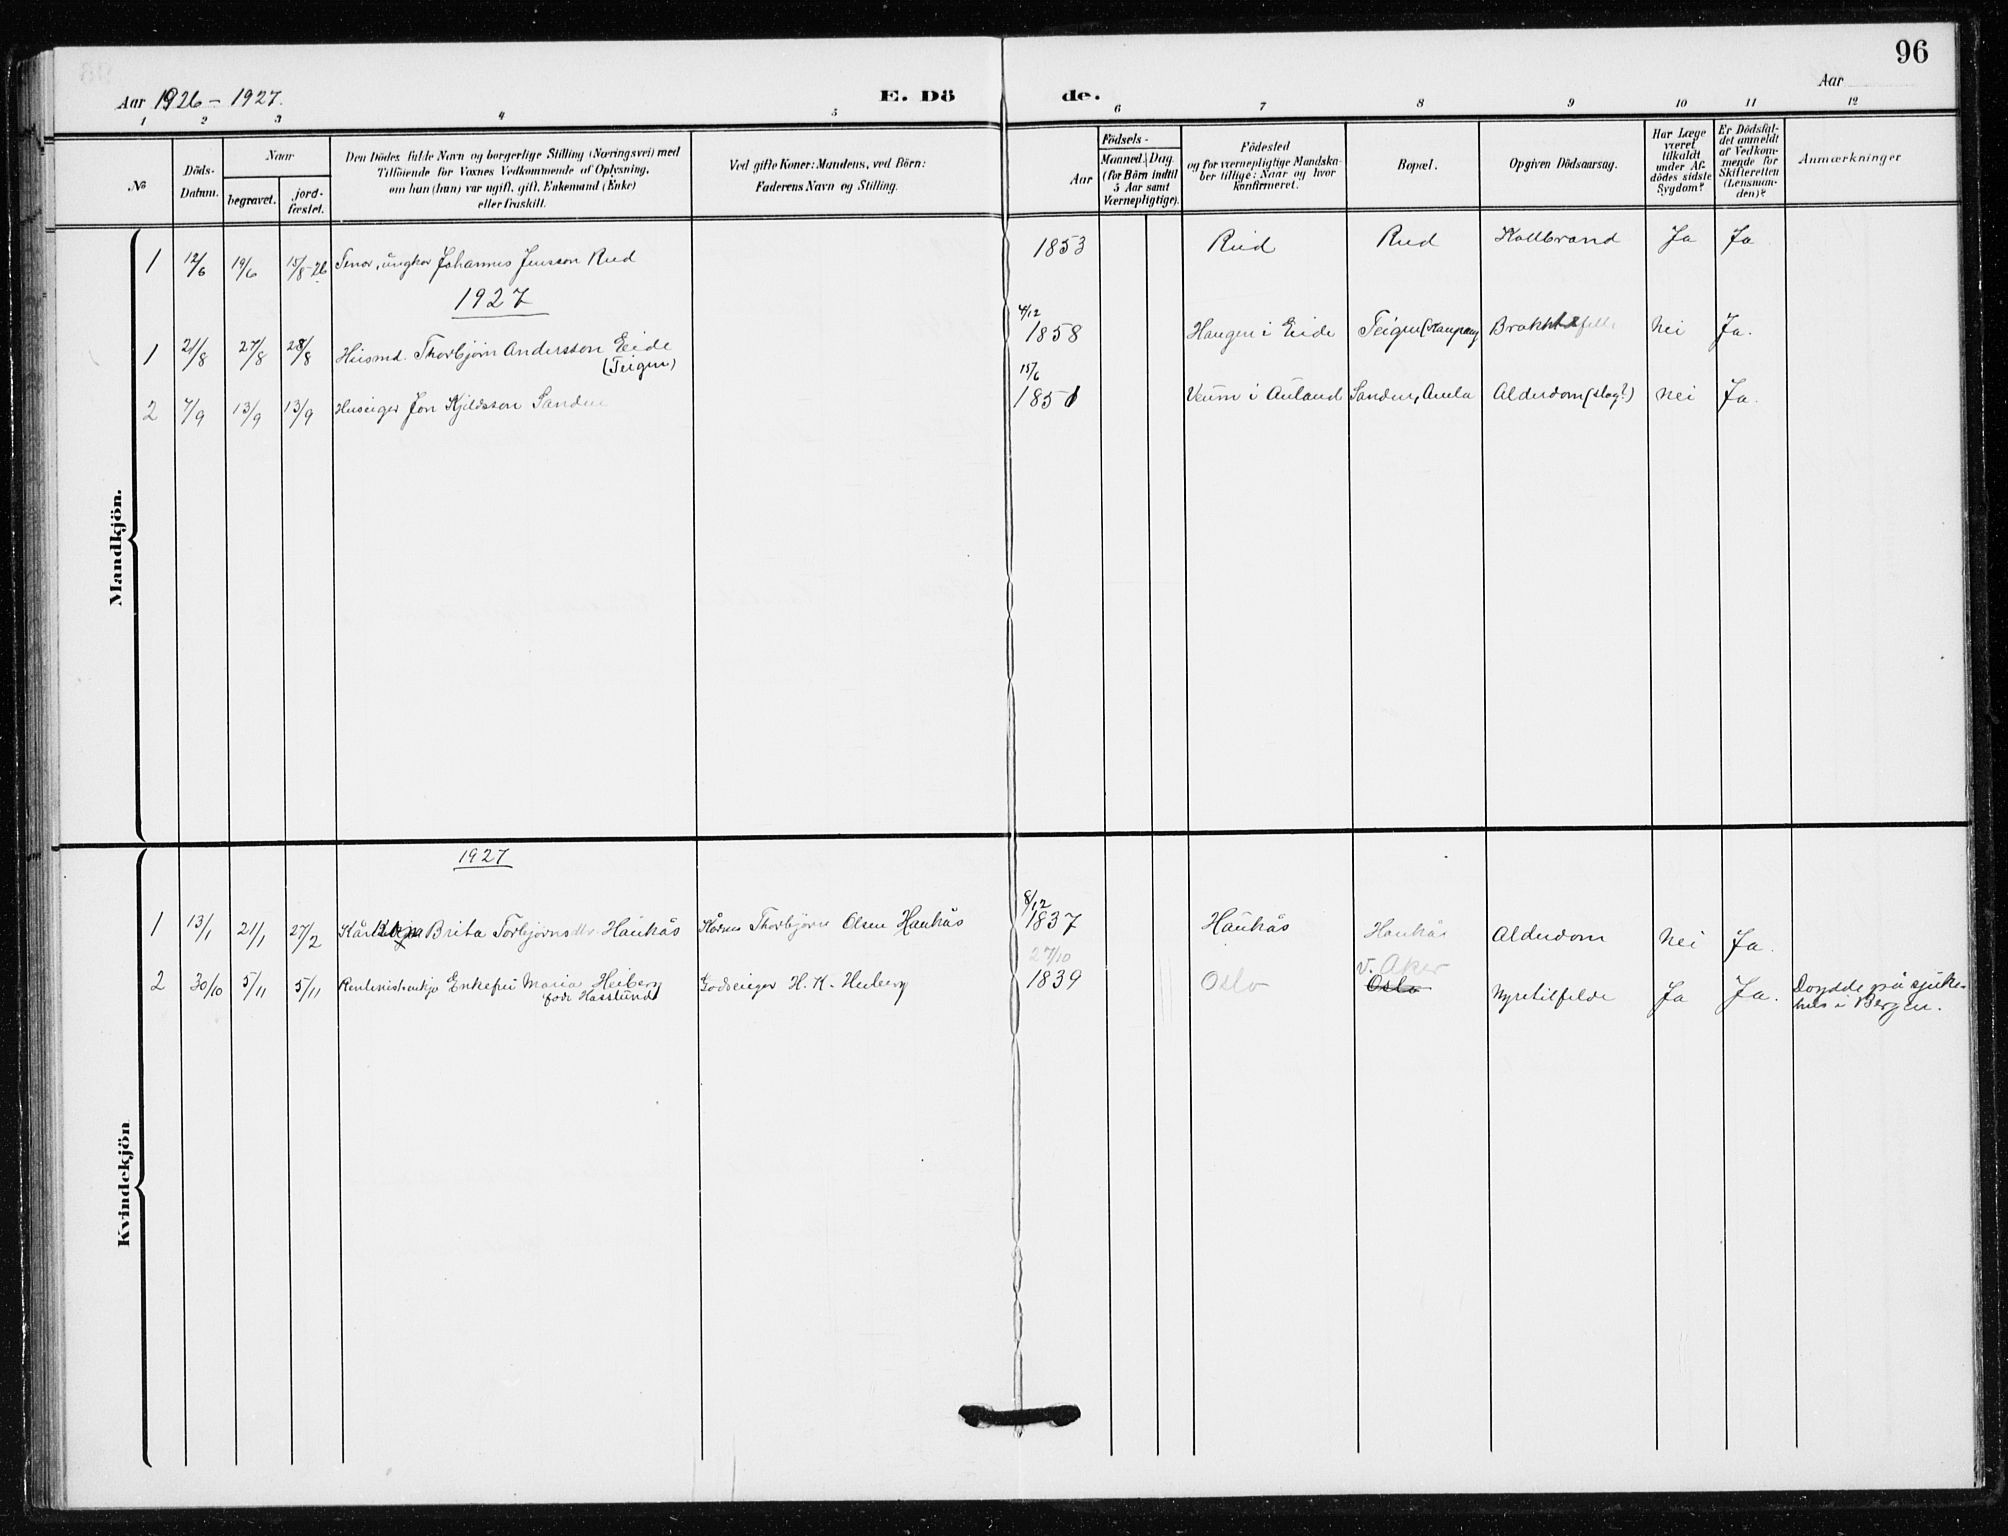 96
Aar 1926 - 1927.
E. Dö de.
Aar
1 2 3 4 5 6 7 8 9 10 11 12
№
Döds-
Datum.
Naar
begravet.
jord-
fæstet.
Den Dödes fulde Navn og borgerlige Stilling (Næringsvei) med
Tilföiende for Voxnes Vedkommende af Oplysning,
om han (hun) var ugift, gift, Enkemand (Enke)
eller fraskilt.
Ved gifte Koner: Mandens, ved Börn:
Faderens Navn og Stilling.
Födsels-
Aar
Maaned. Dag.
(for Börn indtil
5 Aar samt
Værnepligtige).
Födested
og for værnepligtige Mandska-
ber tillige: Naar og hvor
konfirmeret.
Bopæl.
Opgiven Dödsaarsag.
Har Læge
været
tilkaldt
under Af-
dödes sidste
Sygdom?
Er Dödsfal-
det anmeldt
af Vedkom-
mende for
Skifteretten
(Lensman-
den)?
Anmærkninger
Mandkjön.
1 12/6 19/6 15/8-26 ungkar Johannes Jensson Rud 1853 Rud Rud Koldbrand Ja Ja
1927
4/12
1 21/8 27/8 28/8 Husmd. Thorbjørn Andersson Eide 1858 Haugen i Eide Teigen (Kaupang Nei Ja.
(Teigen)
15/6
2 7/9 13/9 13/9 Huseigar Jon Kjeldsson Sanden 1851 Veum i Auland Sanden, Amla Alderdom (slag?) Nei Ja.
Kvindekjön
1927
8/12
1 13/1 21/1 27/2 Brita Torbjørnsdtr. Haukås Thorbjörn Olsen Haukås 1837 Haukås Haukås Alderdom Nei Ja.
27/10
V. Aker
2 30/10 5/11 5/11 Enkefru Maria Heiberg Godseigar H. K. Heiberg 1839 Oslo Oslo Nyretilfelde Ja Ja. Döydde på sjuke-
født Hasslund hus i Bergen.